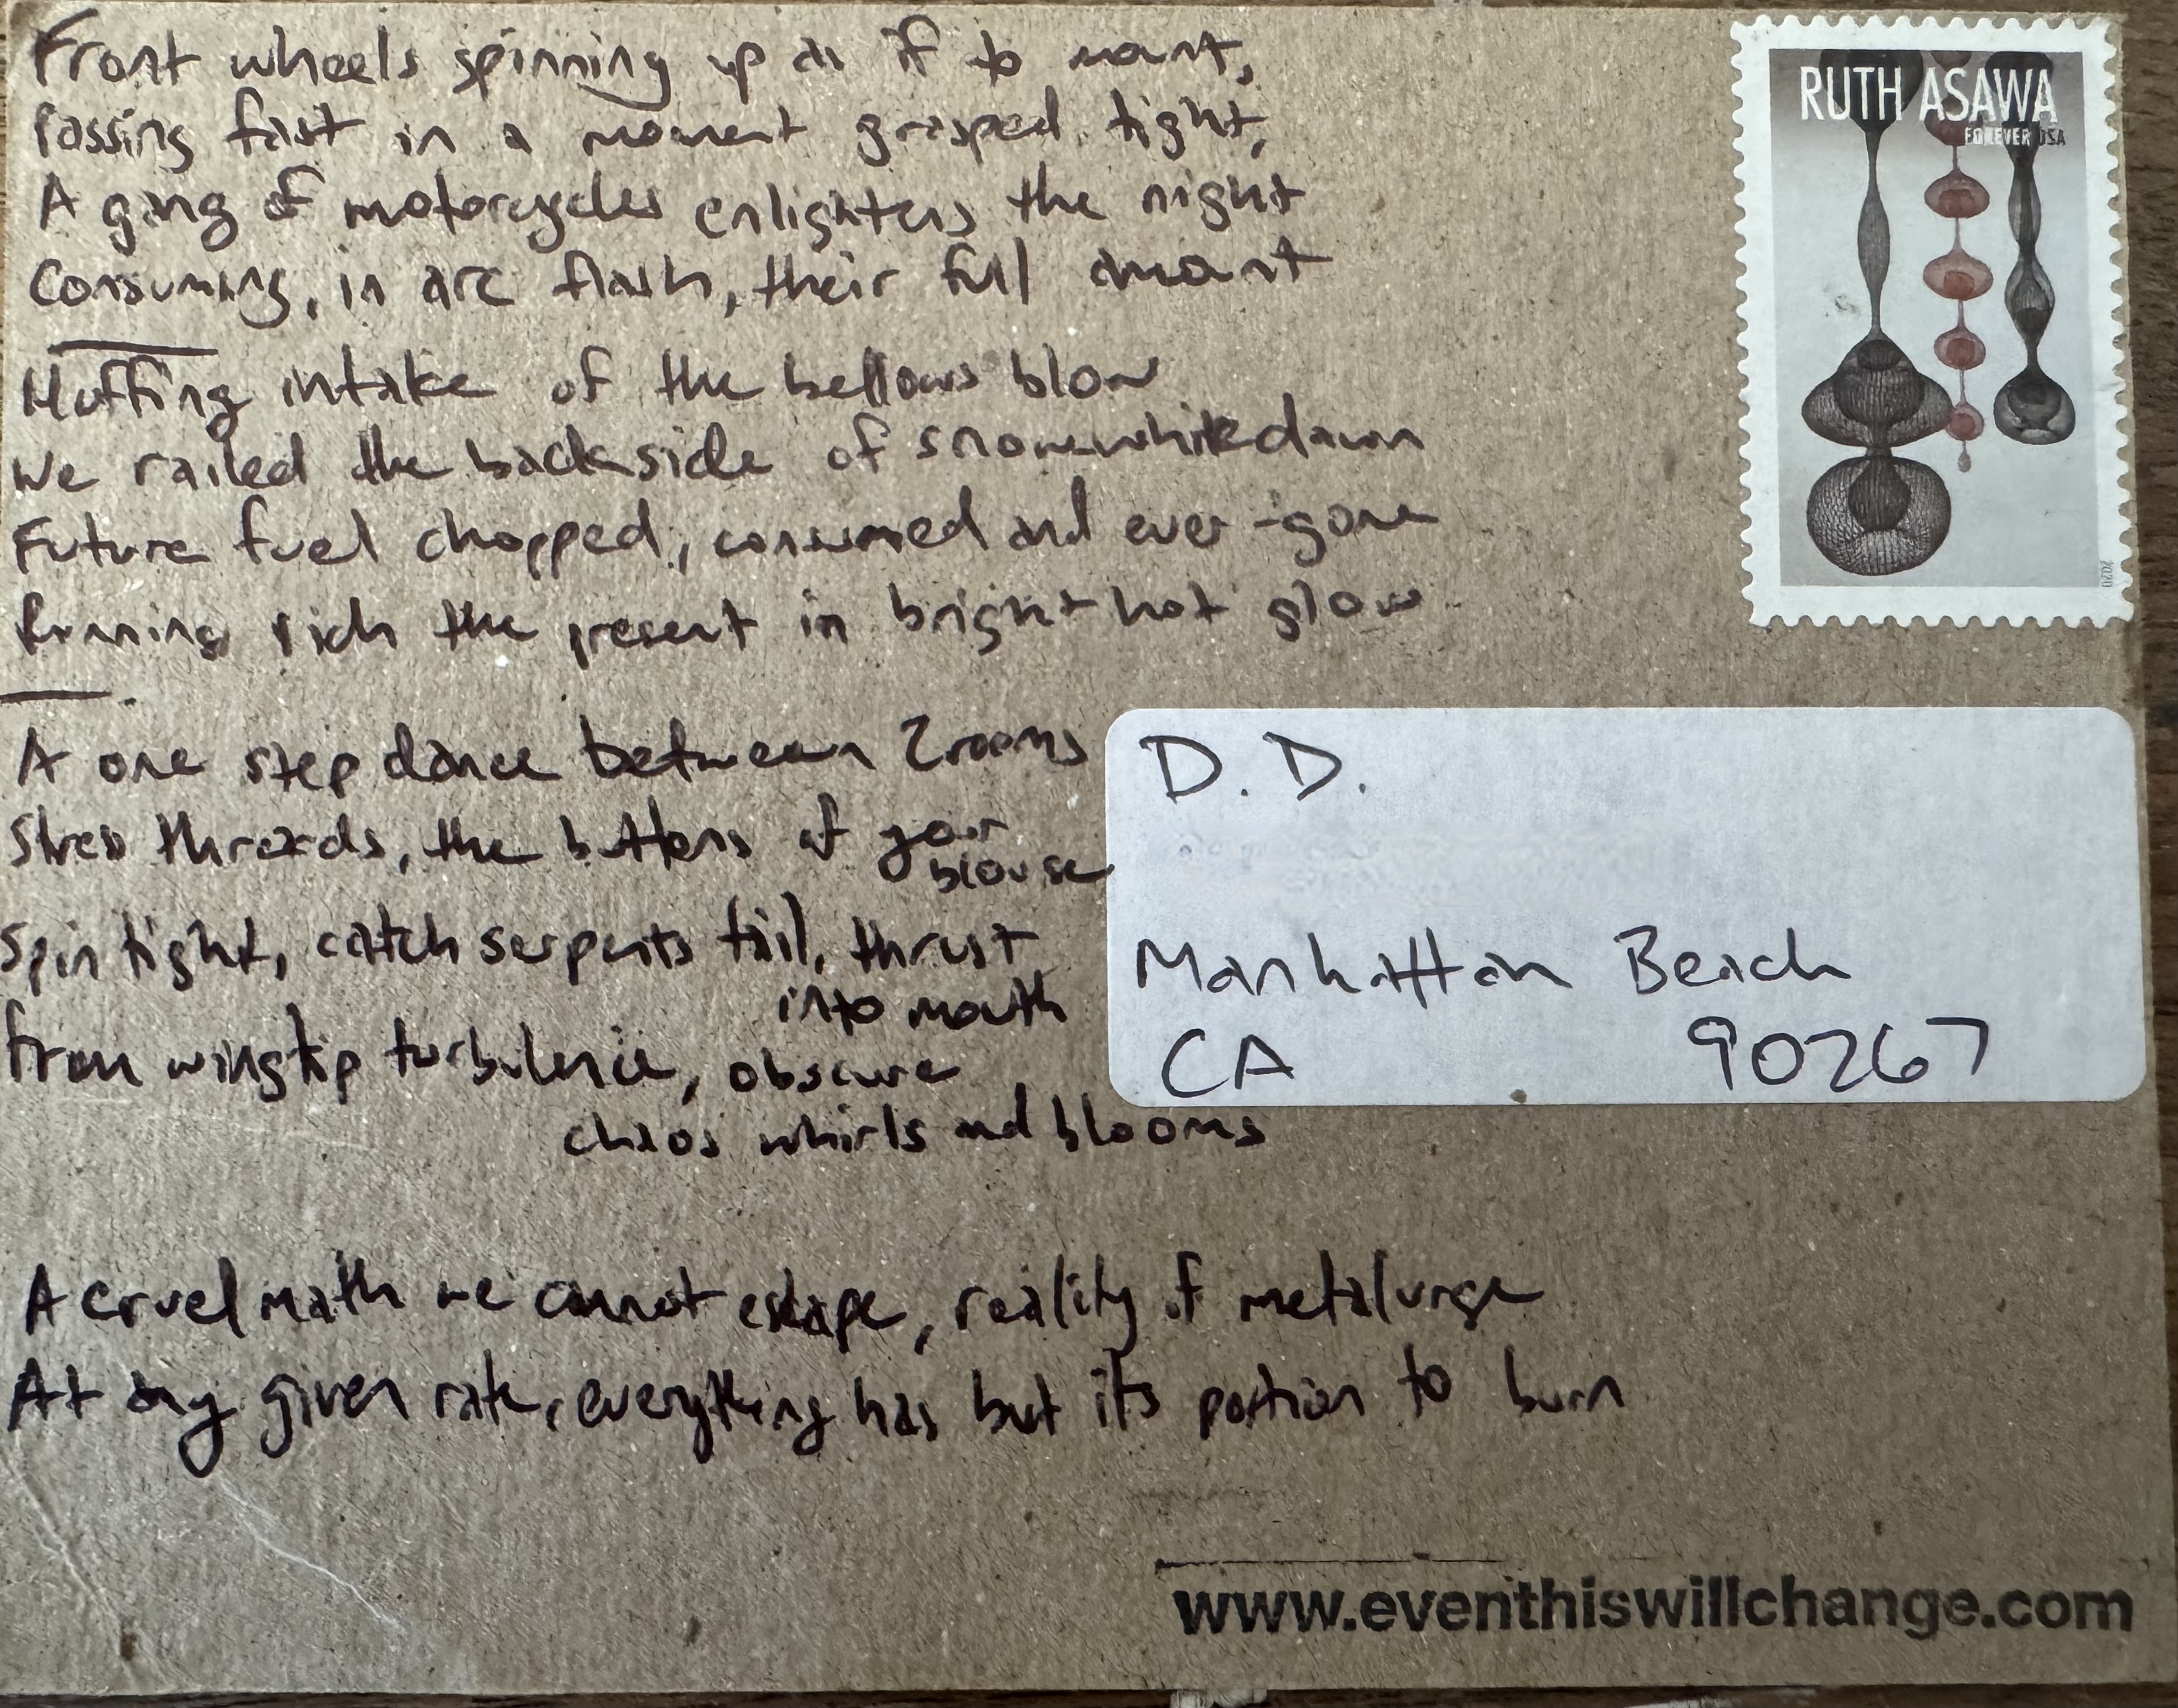 Front wheels spinning up as if to mount,
Passing fast in a moment grasped tight,
A gang of motorcycles enlightens the night
Consuming, in arc flash, their full amount
Huffing intake of the bellows blow
We railed the backside of snow-white dawn
Future fuel chopped, consumed and ever-gone
Running rich the present in bright hot glow
A one step dance between 2 rooms
Stress threads, the buttons of your
blouse
Spin tight, catch serpents tail, thrust
into mouth
From wingtip turbulence, obscure
chaos whirls and blooms
A cruel math we cannot escape, reality of metalurge
At any given rate, everything has but its portion to burn
RUTH ASAWA
FOREVER USA
2020
D. D.
Manhattan Beach
CA 90267
www.eventhiswillchange.com